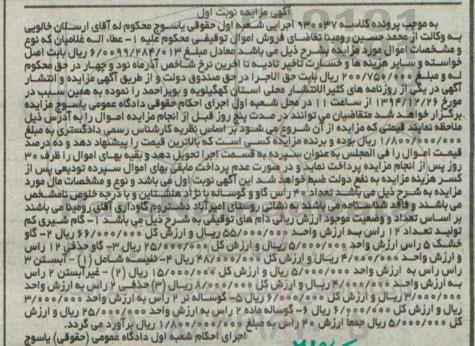 آگهی مزایده نوبت اول
به موجب پرونده کلاسه ۹۳۰۰۳۷ اجرایی شعبه اول حقوقی یاسوج محکوم له آقای ارسلان خالویی
به وکالت از محمد حسین رومینا تقاضای فروش اموال توقیفی محکوم علیه ۱- عطاء اله غلامیان که نوع
و مشخصات اموال مورد مزایده بشرح ذیل می باشد معادل مبلغ ۶/۰۰۹۹/۲۸۴/۰۱۳ ریال بابت اصل
خواسته و سایر هزینه ها و خسارت تاخیر تادیه تا آخرین نرخ شاخص آذرماه نود و چهار در حق محکوم
له و مبلغ ۲۰۰/۷۵۰/۰۰۰ ریال بابت حق الاجرا در حق صندوق دولت و از طریق آگهی مزایده و انتشار
آگهی در یکی از روزنامه های کثیرالانتشار محلی استان کهگیلویه و بویراحمد را نموده به همین سبب در
مورخ ۱۳۹۴/۱۲/۲۶ از ساعت ۱۱ در محل شعبه اول اجرای احکام حقوقی دادگاه عمومی یاسوج مزایده
برگزار خواهد شد متقاضیان می توانند در مدت پنج روز قبل از انجام مزایده اموال را به آدرس ذیل
ملاحظه نمایند قیمتی که مزایده از آن شروع می شود بر اساس نظریه کارشناس رسمی دادگستری به مبلغ
۱/۸۰۰/۰۰۰/۰۰۰ ریال بوده و برنده مزایده کسی است که بالاترین قیمت را پیشنهاد دهد و ده درصد
قیمت اموال را فی المجلس به عنوان سپرده به قسمت اجرا تحویل دهد و بقیه بهای اموال را ظرف ۳۰
روز پس از انجام مزایده پرداخت نماید و در صورت عدم پرداخت مابقی بهای اموال سپرده تودیعی پس از
کسر هزینه مزایده به نفع دولت ضبط خواهد شد این آگهی نوبت اول می باشد و نوع و مشخصات مال مورد
مزایده به شرح ذیل می باشند تعداد ۴۰ راس گاو و گوساله با نژاد هلشتاین و با درجه خلوص نامشخص
می باشند و فاقد شناسنامه می باشند به نشانی روستای امیرآباد دشتروم گاوداری آقای رومینا می باشند
بر اساس تعداد و وضعیت موجود ارزش ریالی دام های توقیفی به شرح ذیل می باشند ۱- گاو شیری کم
تولید تعداد ۱۲ راس به ارزش واحد ۵۵/۰۰۰/۰۰۰ ریال و ارزش کل ۶۶/۰۰۰/۰۰۰ ریال ۲- گاو
خشک ۵ راس ارزش واحد ۵/۰۰۰/۰۰۰ ریال و ارزش کل ۲۵/۰۰۰/۰۰۰ ریال ۳- گاو حذفی ۱۲ راس
و ارزش واحد ۴/۰۰۰/۰۰۰ ریال و ارزش کل ۴۸/۰۰۰/۰۰۰ ریال ۴- تلیسه شامل (۱) - آبستن ۳
راس راس به ارزش واحد ۵/۰۰۰/۰۰۰ ریال و ارزش کل ۱۵/۰۰۰/۰۰۰ ریال (۲) - غیرآبستن ۲ راس
به ارزش واحد ۴/۰۰۰/۰۰۰ ریال و ارزش کل ۸/۰۰۰/۰۰۰ ریال (۳) حذفی ۲ راس به ارزش واحد
۳/۰۰۰/۰۰۰ ریال و ارزش کل ۶/۰۰۰/۰۰۰ ریال ۵- گوساله نر ۲ راس به ارزش واحد ۳/۰۰۰/۰۰۰
ریال و ارزش کل ۶/۰۰۰/۰۰۰ ریال ۶- گوساله ماده ۲ راس به ارزش واحد ۲۵/۰۰۰/۰۰۰ ریال و ارزش
کل ۵/۰۰۰/۰۰۰ ریال جمعا ارزش ۴۰ راس به مبلغ ۱/۸۰۰/۰۰۰/۰۰۰ ریال برآورد می گردد.
اجرای احکام شعبه اول دادگاه عمومی (حقوقی) یاسوج